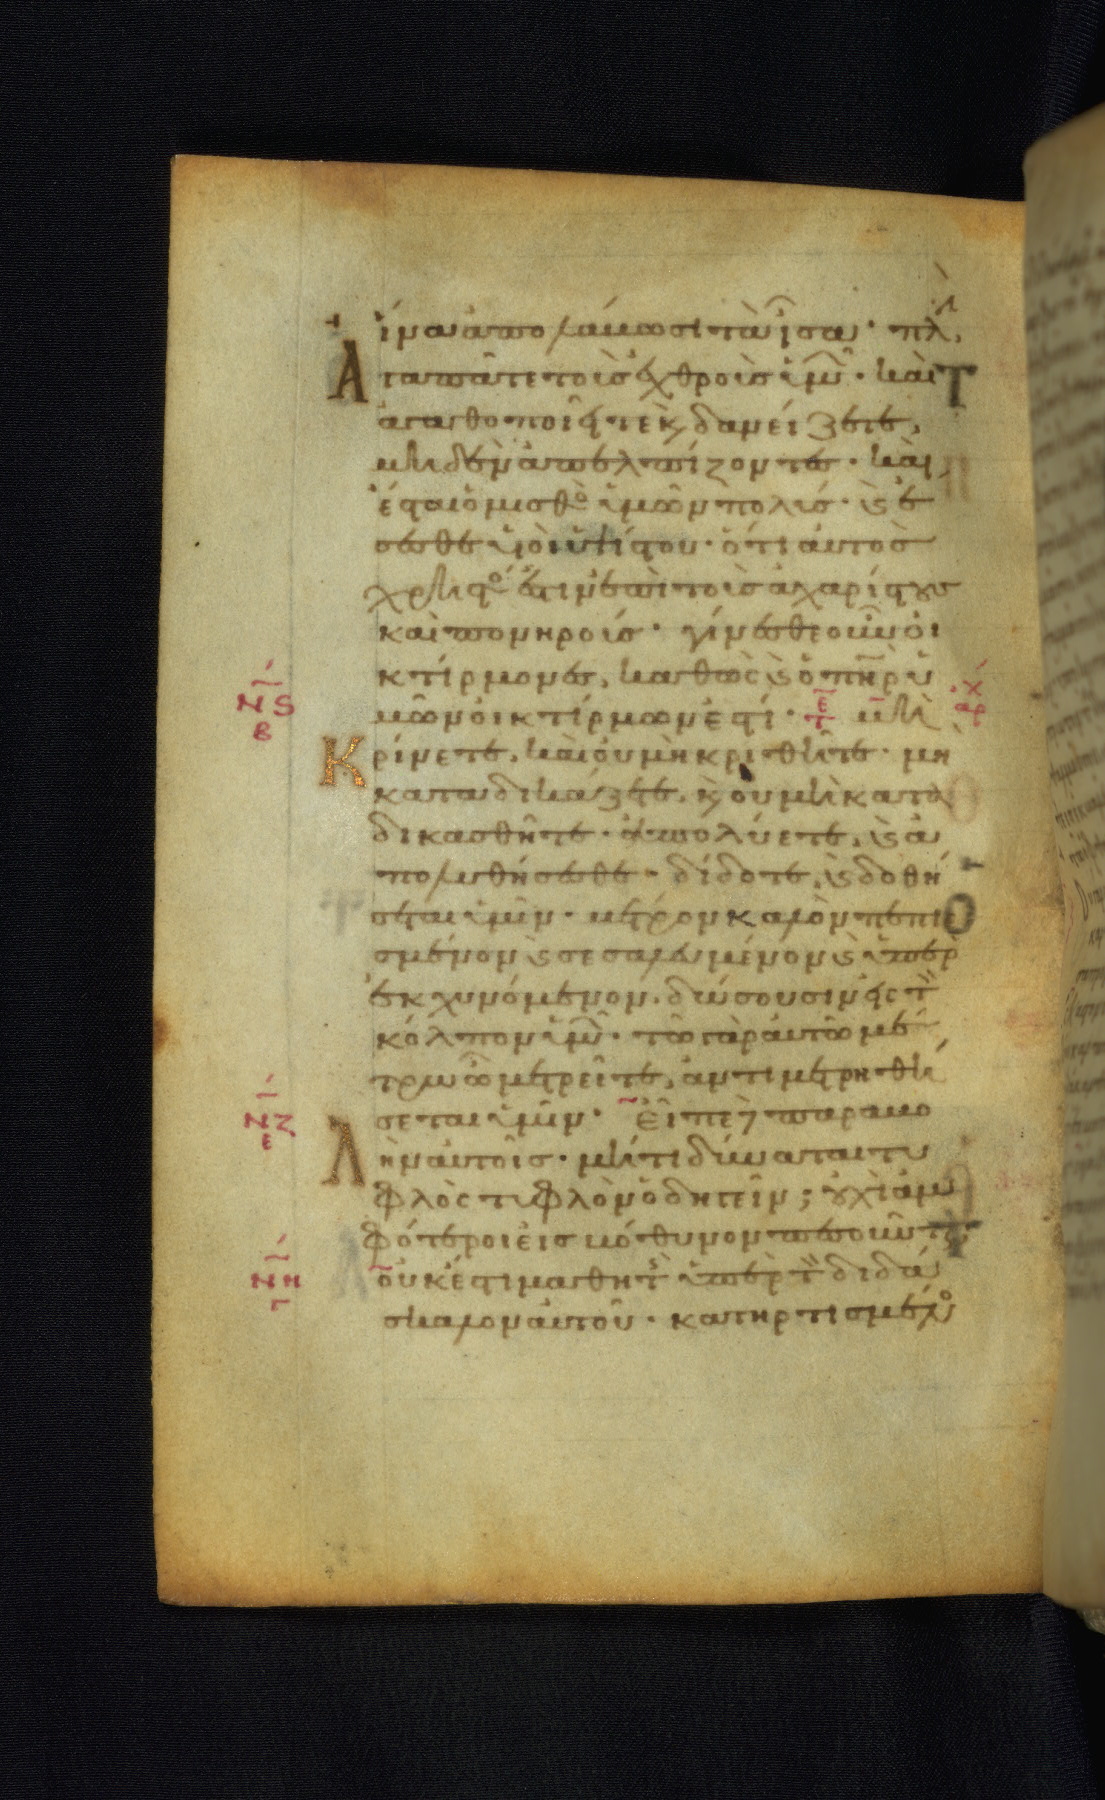 ἵνα ἀπολάβωσι τὰ ἴσα· πλ,
Ἀγαπᾶτε τοὺς ἐχθροὺς ὑμῶ̂· καὶ
ἀγαθοποιεῖτε κ̀ δανείζετε,
μηδὲν ἀπελπίζοντες· καὶ
ἔσται ὁ μισθὸ ὑμῶν πολύς· ϗ ἔ
σεσθε υἱοὶ ὑψίστου· ὅτι αὐτὸς
χρηστό ἐστιν ἐπὶ τοὺς ἀχαρίστους
καὶ πονηρούς· γίνεσθε οὖν οἰ
κτίρμονες, καθὼς ϗ ὁ πη̅ρ ὑ
μῶν οἰκτίρμων ἐστί· τε̅ μὴ ἀρχ
ΝϚ
Β
Κρίνετε, καὶ οὐ μὴ κριθῆτε· μὴ
καταδικάζετε, κ̀ οὐ μὴ κατα
δικασθῆτε· ἀπολύετε, ϗ ἀ
πολυθήσεσθε· δίδοτε, ϗ δοθή
σεται ὑμῖν· μέτρον καλὸν πεπιε
σμένον ϗ σεσαλευμένον ϗ ὑπερ
εκχυνόμενον, δώσουσιν εἰς τὸ̅
κόλπον ὑμῶ̂· τῶ γὰρ αὐτῶ μέ
τρω ὧ μετρεῖτε, ἀντιμετρηθή
σεται ὑμῖν· Εἶπε δὲ παραβο
ΝΖ
Ε
Λὴν αὐτοῖς· μήτι δύναται τυ
φλὸς τυφλὸν ὁδηγεῖν; οὐχὶ ἀμ
φότεροι εἰς βόθυνον πεσοῦντ
ΝΗ
Γ
οὐκ ἔστι μαθητὴ̀ ὑπὲρ τὸ̅ διδά
σκαλον αὐτοῦ· κατηρτισμένο